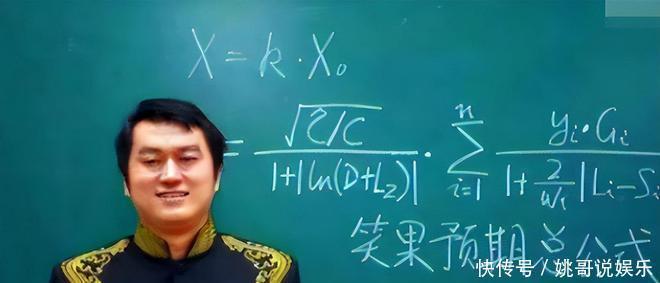 X = k · X₀
= √(2/C) / (1+|ln(D+L₂)|) · ∑ⁿᵢ₌₁ (yᵢ·Gᵢ) / (1+(2/wᵢ)|Lᵢ-Sᵢ
笑果预期总公式
快传号/姚哥说娱乐